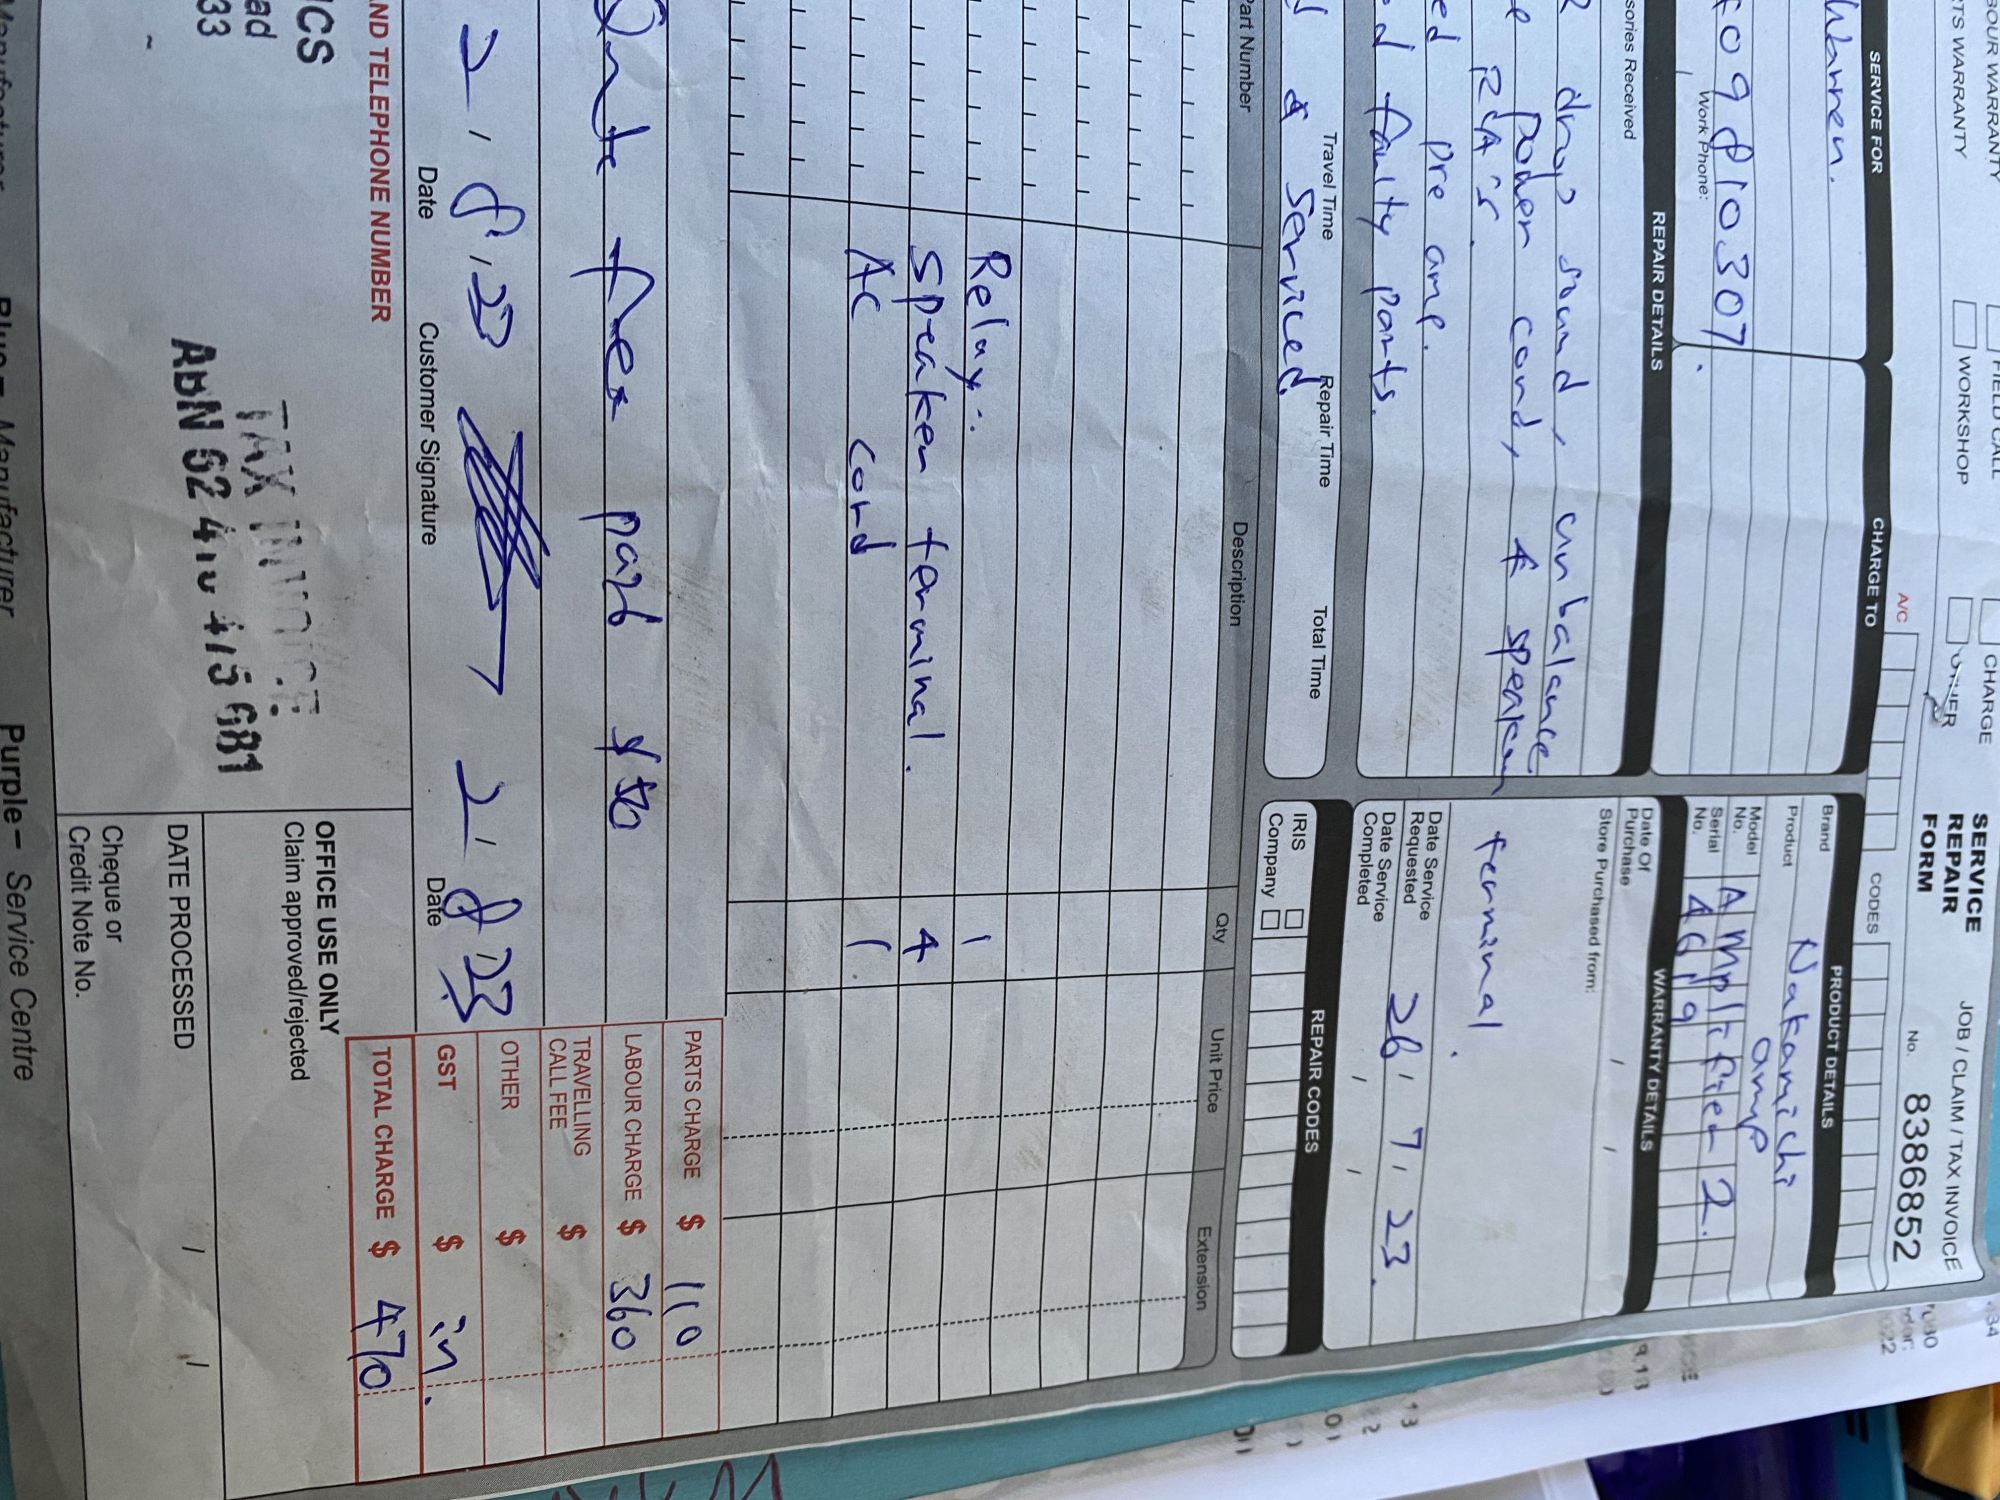 SERVICE
REPAIR
FORM
JOB / CLAIM / TAX INVOICE
No. 83868852
BOUR WARRANTY
FIELD CALL
CHARGE
TS WARRANTY
WORKSHOP
A/C
CODES
SERVICE FOR
CHARGE TO
PRODUCT DETAILS
Brand Nakamichi
Product amp
Model No. Amplifier 2.
Serial No. 4619
Work Phone:
WARRANTY DETAILS
Date Of Purchase / /
Store Purchased from:
REPAIR DETAILS
sories Received
drops sound, unbalance
power cord, 4 speaker terminal.
RCA's
ed pre amp.
ed faulty parts.
Date Service Requested 26, 7, 23.
Date Service Completed / /
Travel Time
Repair Time
Total Time
& Serviced
REPAIR CODES
IRIS
Company
Part Number
Description
Qty
Unit Price
Extension
Relay. 1
Speaker terminal. 4
AC cord 1
PARTS CHARGE $ 110
LABOUR CHARGE $ 360
TRAVELLING CALL FEE $
OTHER $
GST $ in.
TOTAL CHARGE $ 470
2, 8, 23
2, 8, 23
Date
Customer Signature
Date
AND TELEPHONE NUMBER
ICS
ad
33
TAX INVOICE
OFFICE USE ONLY
Claim approved/rejected
DATE PROCESSED / /
Cheque or
Credit Note No.
Manufacturer
Blue – Manufacturer
Purple – Service Centre